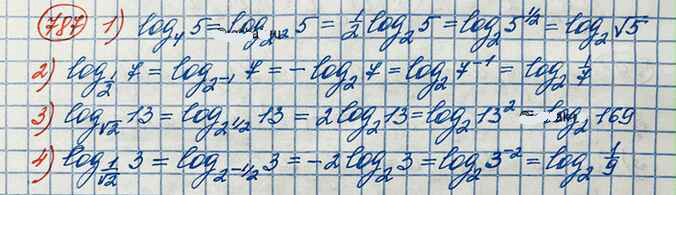 787 1) log₄ 5 = log₂ 5 = 1/2 log₂ 5 = log₂ 5^(1/2) = log₂ √5
2) log_(1/2) 7 = log_(2⁻¹) 7 = -log₂ 7 = log₂ 7⁻¹ = log₂ 1/7
3) log_(√2) 13 = log_(2^(1/2)) 13 = 2 log₂ 13 = log₂ 13² = log₂ 169
4) log_(1/√2) 3 = log_(2^(-1/2)) 3 = -2 log₂ 3 = log₂ 3⁻² = log₂ 1/9